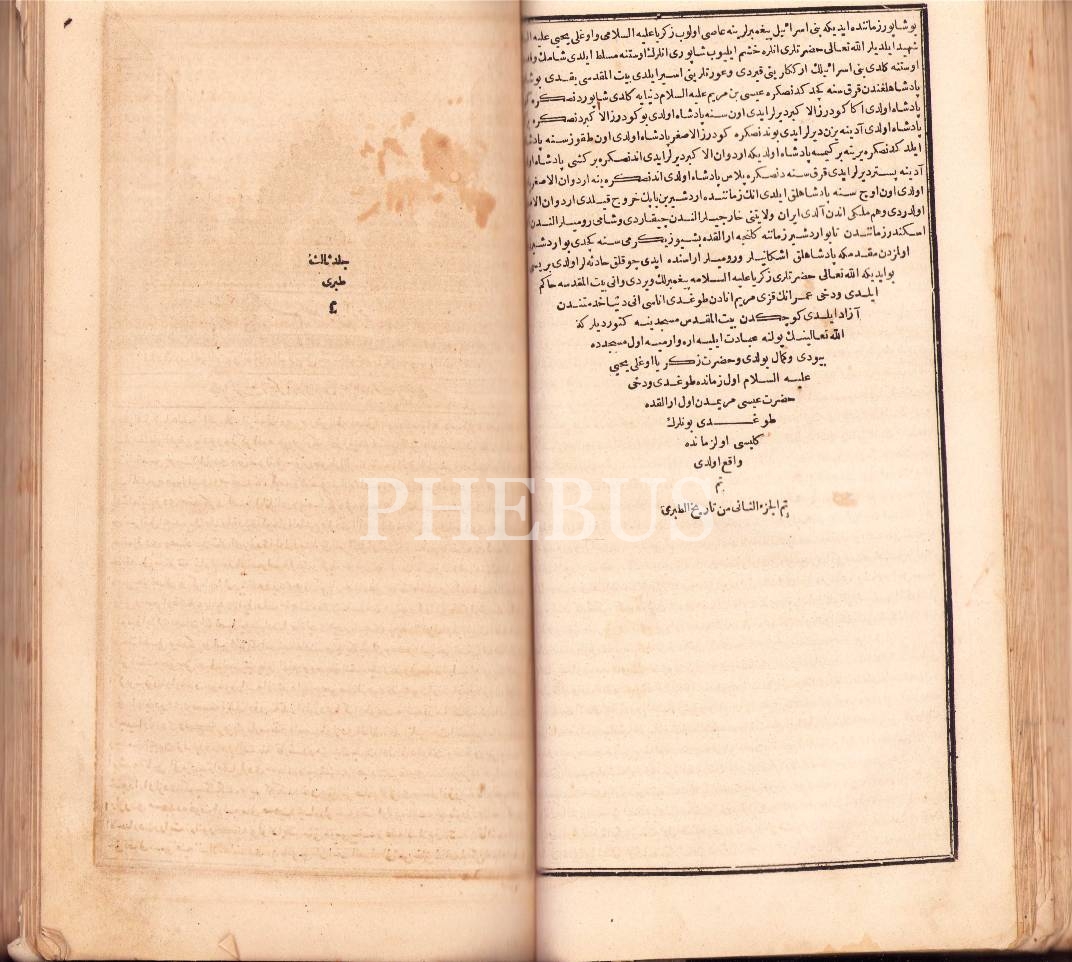 بو شاپور زماننده ایدیکه بنی اسرائیل پیغمبرلرینه عاصی اولوب زکریا علیه السلامی و اوغلی یحیی علیه
شهید ایلدیلر الله تعالی حضرتلری انلره خشم ایلیوب شاپوری انلرك اوستنه مسلط ایلدی شامك
اوستنه کلدی بنی اسرائیلك ارککلرینی قیردی و عورتلرینی اسیر ایلدی بیت المقدسی یقدی
پادشاهلغندن قرق سنه کچدکدنصکره عیسی بن مریم علیه السلام دنیایه کلدی شاپوردنصکره
پادشاه اولدی اکا کودرز الاکبر دیرلر ایدی اون سنه پادشاه اولدی بو کودرز الاکبردنصکره
پادشاه اولدی آدینه بیزن دیرلر ایدی بوندنصکره کودرز الاصغر پادشاه اولدی اون طقوز سنه
ایلدکدنصکره یرینه بر کیمسه پادشاه اولدیکه اردوان الاکبر دیرلر ایدی اندنصکره بر کشی پادشاه
آدینه دیرلر ایدی قرق سنه دنصکره پلاس پادشاه اولدی اندنصکره ینه اردوان الاصغر
اولدی اون اوچ سنه پادشاهلق ایلدی انك زماننده اردشیر بن بابك خروج قیلدی اردوان
اولدردی و هم ملکی اندن آلدی ایران ولایتنی خارجیلر الندن چیقاردی و شامی رومیلر الندن
اسکندر زمانندن تا بو اردشیر زماننه کلنجه ارالقده بشیوز یکرمی سنه کچدی بو
اولزدن مقدمکه پادشاهلق اشکانیلر و رومیلر اراسنده ایدی چوقلق حادثه لر اولدی بریسی
بو ایدیکه الله تعالی حضرتلری زکریا علیه السلامه پیغمبرلك ویردی وانی بیت المقدسه حاکم
ایلدی ودخی عمرانك قزی مریم انادن طوغدی اناسی انی دنیا خدمتندن
آزاد ایلدی کوچکدن بیت المقدس مسجدینه کتوردیلر که
الله تعالینك یولنه عبادت ایلیه اره وارمیه اول مسجدده
بیودی و کمال بولدی و حضرت زکریا اوغلی یحیی
علیه السلام اول زمانده طوغدی ودخی
حضرت عیسی مریمدن اول ارالقده
طوغدی بونلرك
کلیسی اولزمانده
واقع اولدی
تم
تم الجزء الثانی من تاریخ الطبری
جلد ثالثه
طبری
PHEBUS